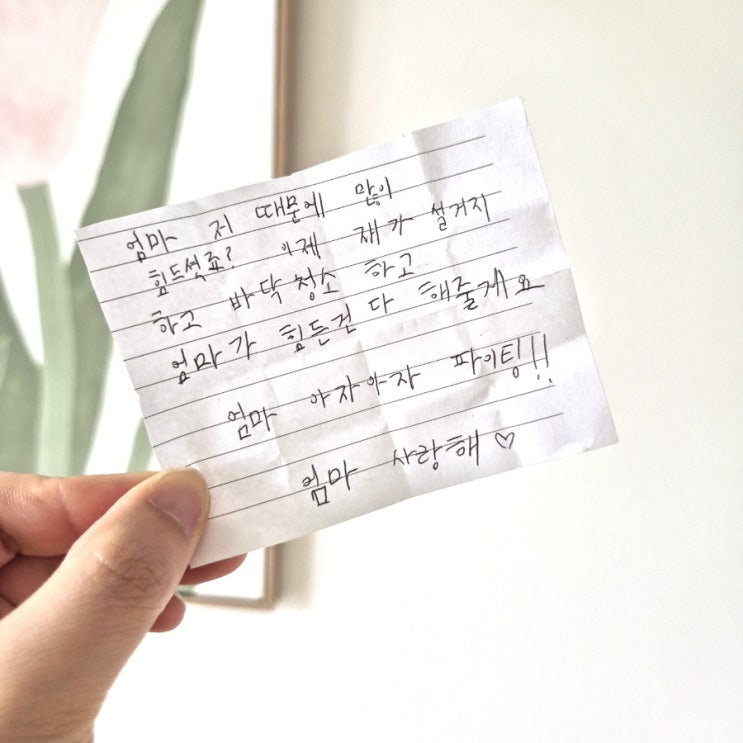 엄마 저 때문에 많이
힘드셨죠? 이제 제가 설거지
하고 바닥청소 하고
엄마가 힘든건 다 해줄게요
엄마 아자아자 파이팅!!
엄마 사랑해 ♡